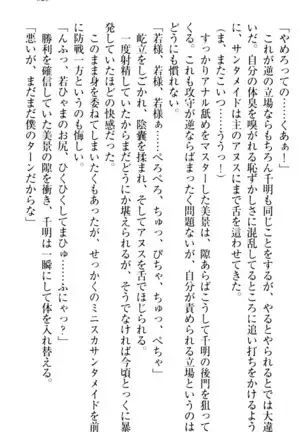 「やめろっての……くぁぁ!」
　これが逆の立場なら千明も同じことをするが、やるとやられるとでは大違
いだ。自分の体臭を嗅がれる恥ずかしさに混乱してるところに追い打ちをかけるよう
に、サンタメイドは主のアヌスにまで舌を這わせてきた。
(ま、またこいつ……ううっ!)
　すっかりアナル舐めをマスターした美景は、隙あらばこうして千明の後門を狙って
くる。これも攻守が逆ならまったく問題ないが、自分が責められる立場というのは
どうにも慣れない。
「若様、若様……ぺろぺろ、ちゅっ、ぴちゃ、ちゅっ、ぺちゃ」
　屹立をしごかれ、陰嚢を揉まれ、そしてアヌスを舌でほじられる。
　一度射精していたからまだどうにか堪えられるが、そうでなければ今頃とっくに暴
発していたほどの快感だった。
　このまま身を委ねてしまいたくもあったが、せっかくのミニスカサンタメイドを前
に防戦一方というのも悔しい。
「んふっ、若ひゃまのお尻、ひくひくしてまひゅ……ふにゃっ?」
　勝利を確信していた美景の隙を衝き、千明は一瞬にして体を入れ替える。
「悪いが、まだまだ僕のターンだからな」